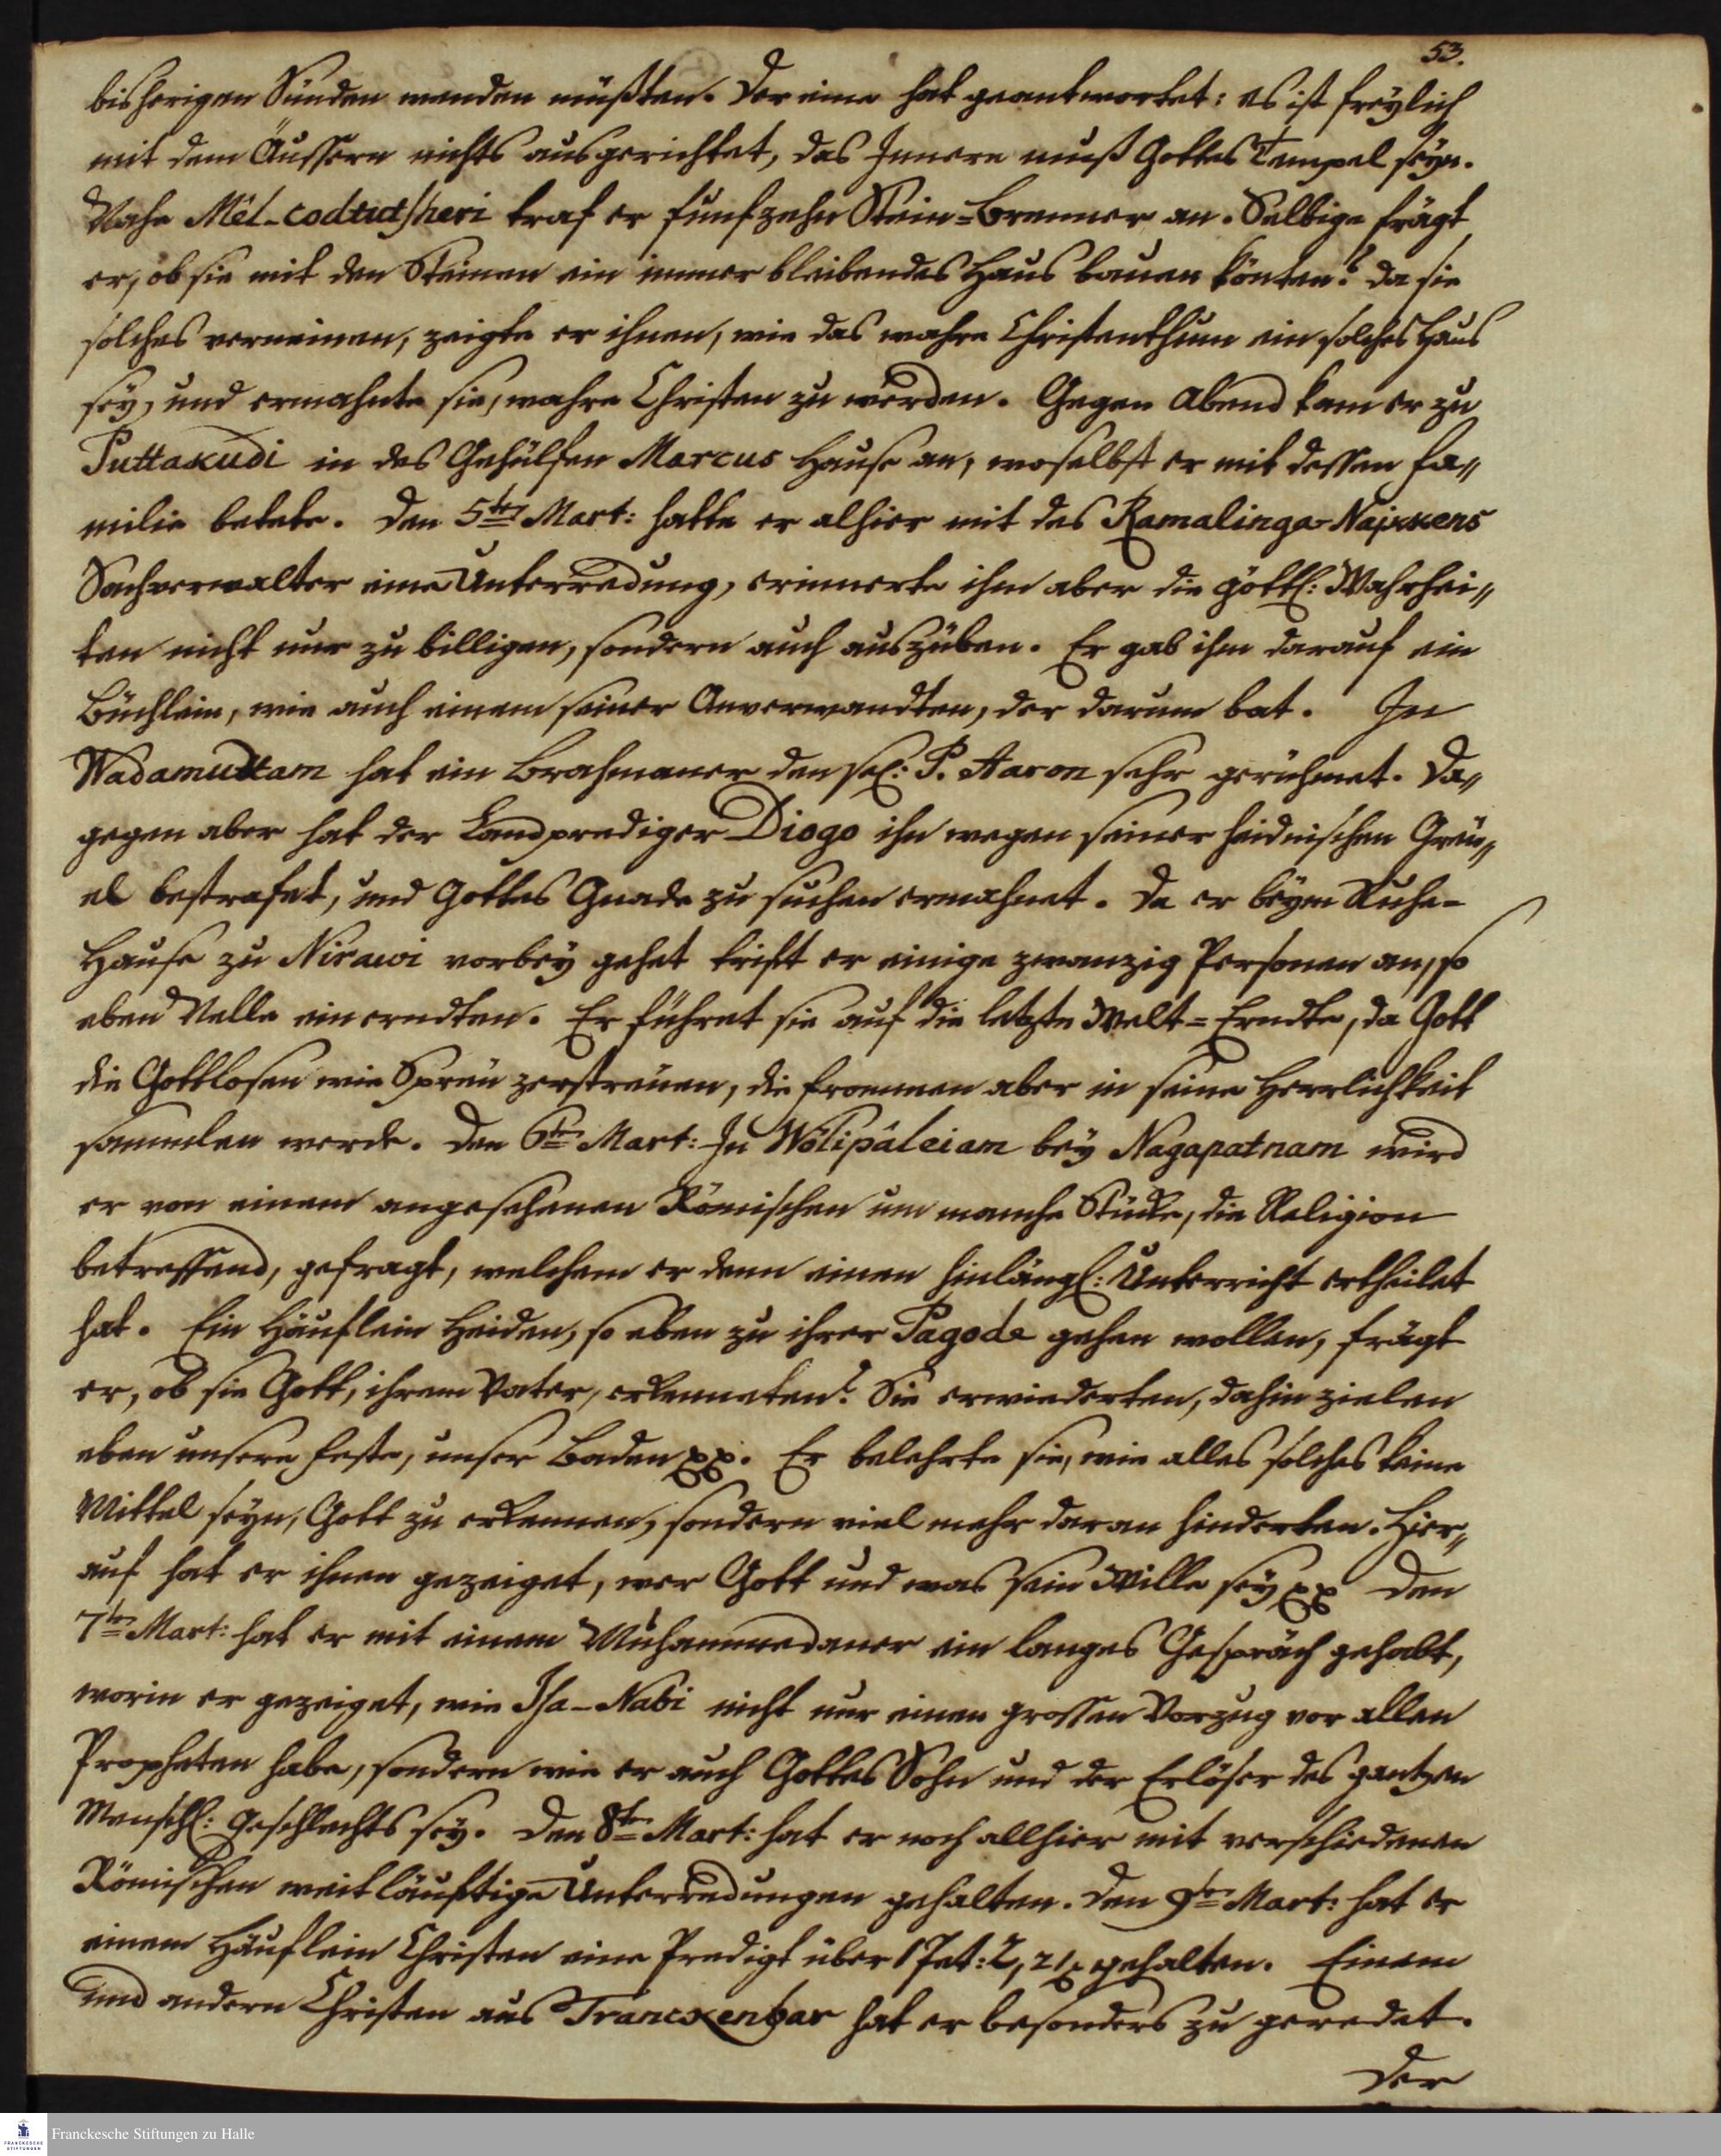 53.
bisherigen Sünden wenden müßten. Der eine hat geantwortet: es ist freylich
mit dem Äussern nichts ausgerichtet, das Innere muß Gottes Tempel seyn.
Nahe Mêl-codtutsheri traf er funfzehn Stein-Brenner an. Selbige frägt
er, ob sie mit den Steinen ein immer bleibendes Haus bauen könten? da sie
solches verneinen, zeigte er ihnen, wie das wahre Christenthum ein solches Haus
sey, und ermahnte sie, wahre Christen zu werden. Gegen Abend kam er zu
Puttakudi in des Gehülfen Marcus Hause an, woselbst er mit dessen Fa„
milie betete. Den 5ten Mart: hatte er alhier mit des Ramalinga-Naikkens
Sachverwalter eine Unterredung, erinnerte ihm aber die göttl: Wahrhei„
ten nicht nur zu billigen, sondern auch auszüben. Er gab ihm darauf ein
Büchlein, wie auch einem seiner Anverwandten, der darum bat. In
Wadamuttam hat ein Brahmaner den sel: P. Aaron sehr gerühmet. Da„
gegen aber hat der Landprediger Diogo ihn wegen seiner heidnischen Greu„
el bestrafet, und Gottes Gnade zu suchen ermahnet. Da er beym Ruhe-
Hause zu Nirawi vorbey gehet trift er einige zwanzig Personen an, so
eben Nelle einerndten. Er führet sie auf die letzte Welt-Erndte, da Gott
die Gottlosen wie Spreu zerstreuen, die frommen aber in seine Herrlichkeit
sammlen werde. Den 6ten Mart: In Wölipâleiam bey Nagapatnam wird
er von einem angesehenen Römischen um manche Stücke, die Religion
betreffend, gefragt, welchem er denn einen hinlängl: Unterricht ertheilet
hat. Ein Häuflein Heiden, so eben zu ihrer Pagode gehen wollen, frägt
er, ob sie Gott, ihrem Vater, erkenneten? Sie erwiederten, dahin zielen
eben unsere Feste, unser Baden pp. Er belehrte sie, wie alles solches keine
Mittel seyn, Gott zu erkennen, sondern viel mehr daran hinderten. Hier„
auf hat er ihnen gezeiget, wer Gott und was sein Wille sey pp Den
7ten Mart: hat er mit einem Muhammedaner ein langes Gespräch gehabt,
worin er gezeiget, wie Isa-Nabi nicht nur einen grossen Vorzug vor allen
Propheten habe, sondern wie er auch Gottes Sohn und der Erlöser des gantzen
Menschl: Geschlechts sey. Den 8ten Mart: hat er noch allhier mit verschiedenen
Römischen weitläuftige Unterredungen gehalten. Den 9ten Mart: hat er
einem Häuflein Christen eine Predigt über 1 Pet: 2, 21 gehalten. Einem
und andern Christen aus Tranckenbar hat er besonders zu geredet.
Der
Franckesche Stiftungen zu Halle
FRANCKESCHE
STIFTUNGEN